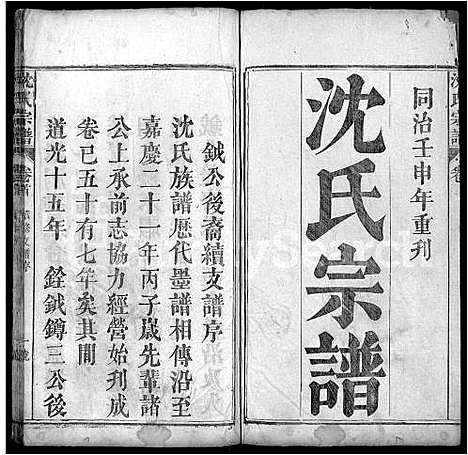 沈氏宗譜
同治壬申年重刊
沈氏宗譜
鉞公後裔續支譜序
沈氏族譜歴代墨譜相傳沿至
嘉慶二十一年丙子歲先輩諸
公上承前志協力經營始刋成
卷己五十有七年矣其間
道光十五年　銓鉞鏄三公後
沈氏宗譜
卷首